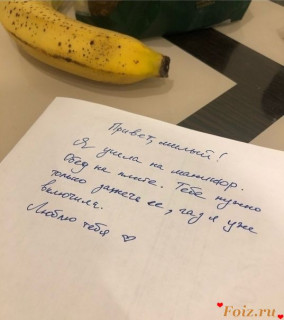 Привет, милый!
Я ушла на маникюр.
Обед на плите. Тебе нужно
только зажечь её, газ я уже
включила.
Люблю тебя ♡
Foiz.ru